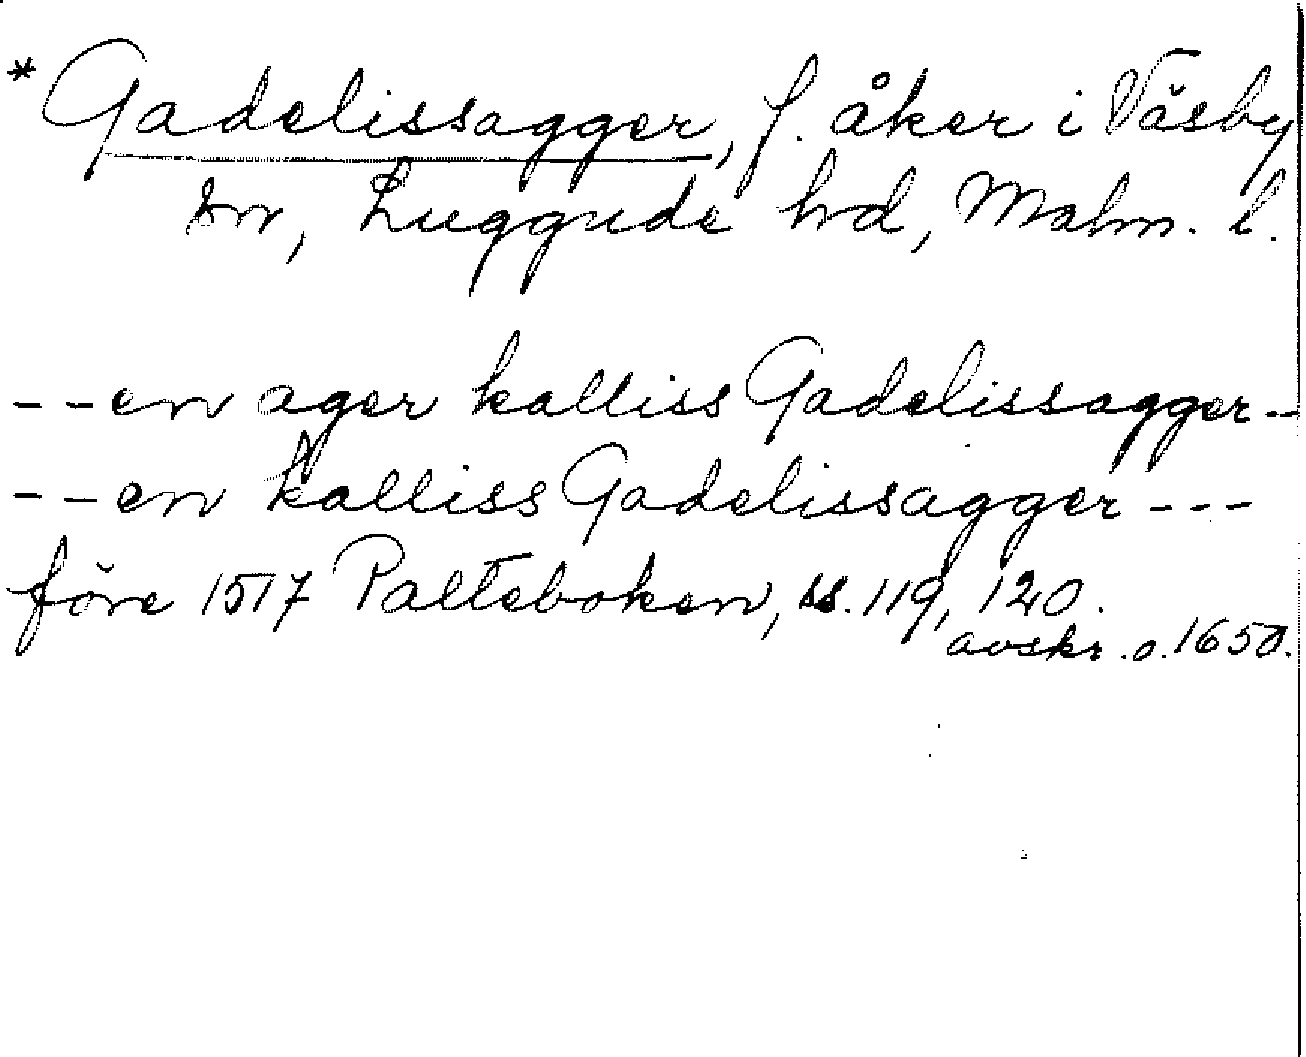 *Gadelissagger, f. åker i Väsby
sn, Luggude hd, Malm. l.
--en ager kalliss Gadelissagger--
--en kalliss Gadelissagger---
före 1517 Palteboken, ss. 119, 120.
avskr. o. 1650.